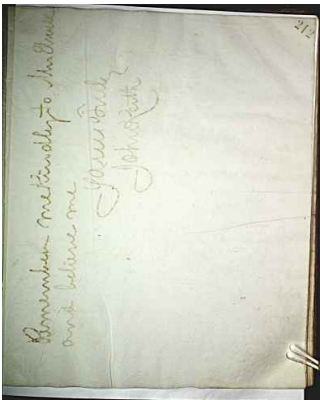 212
Remember me kindly to Mrs
and believe me
Yours truly
John